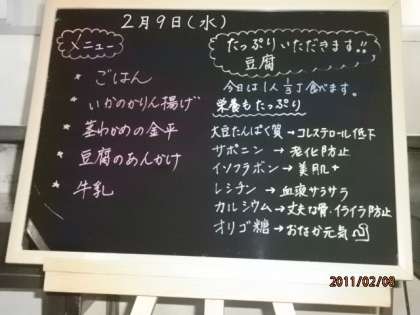 2月9日(水)
メニュー
* ごはん
* いかのかりん揚げ
* 茎わかめの金平
* 豆腐のあんかけ
* 牛乳
たっぷりいただきます!!
豆腐
今日は1人 1/3丁食べます。
栄養もたっぷり
大豆たんぱく質→コレステロール低下
サポニン→老化防止
イソフラボン→美肌+
レシチン→血液サラサラ
カルシウム→丈夫な骨・イライラ防止
オリゴ糖→おなか元気
2011/02/09